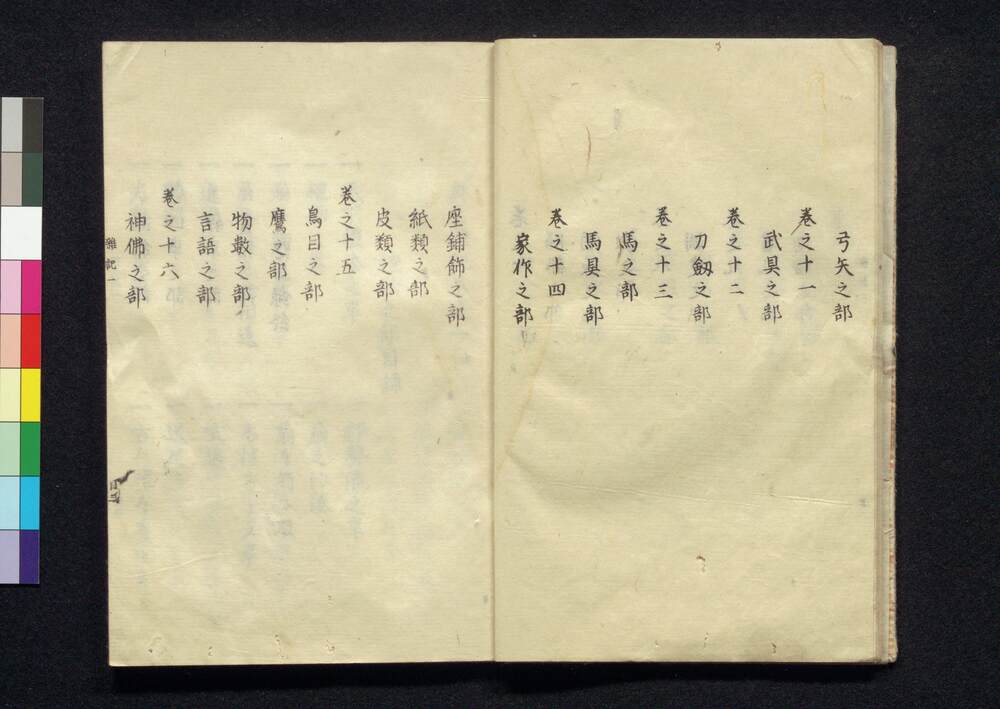 弓矢之部
卷之十一
武具之部
卷之十二
刀劔之部
卷之十三
馬之部
馬具之部
卷之十四
家作之部
座鋪飾之部
紙類之部
皮類之部
卷之十五
鳥目之部
鷹之部
物數之部
言語之部
卷之十六
神佛之部
雜記一